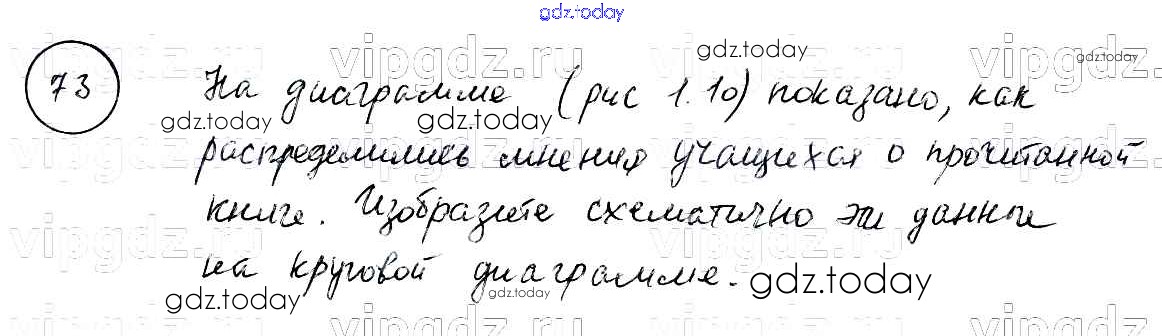 gdz.today
73 На диаграмме (рис 1.10) показано, как
распределились мнения учащихся о прочитанной
книге. Изобразите схематично эти данные
на круговой диаграмме.
vipgdz.ru vipgdz.ru vipgdz.ru
gdz.today gdz.today
gdz.today gdz.today
vipgdz.ru vipgdz.ru vipgdz.ru
gdz.today gdz.today gdz.today
vipgdz.ru vipgdz.ru